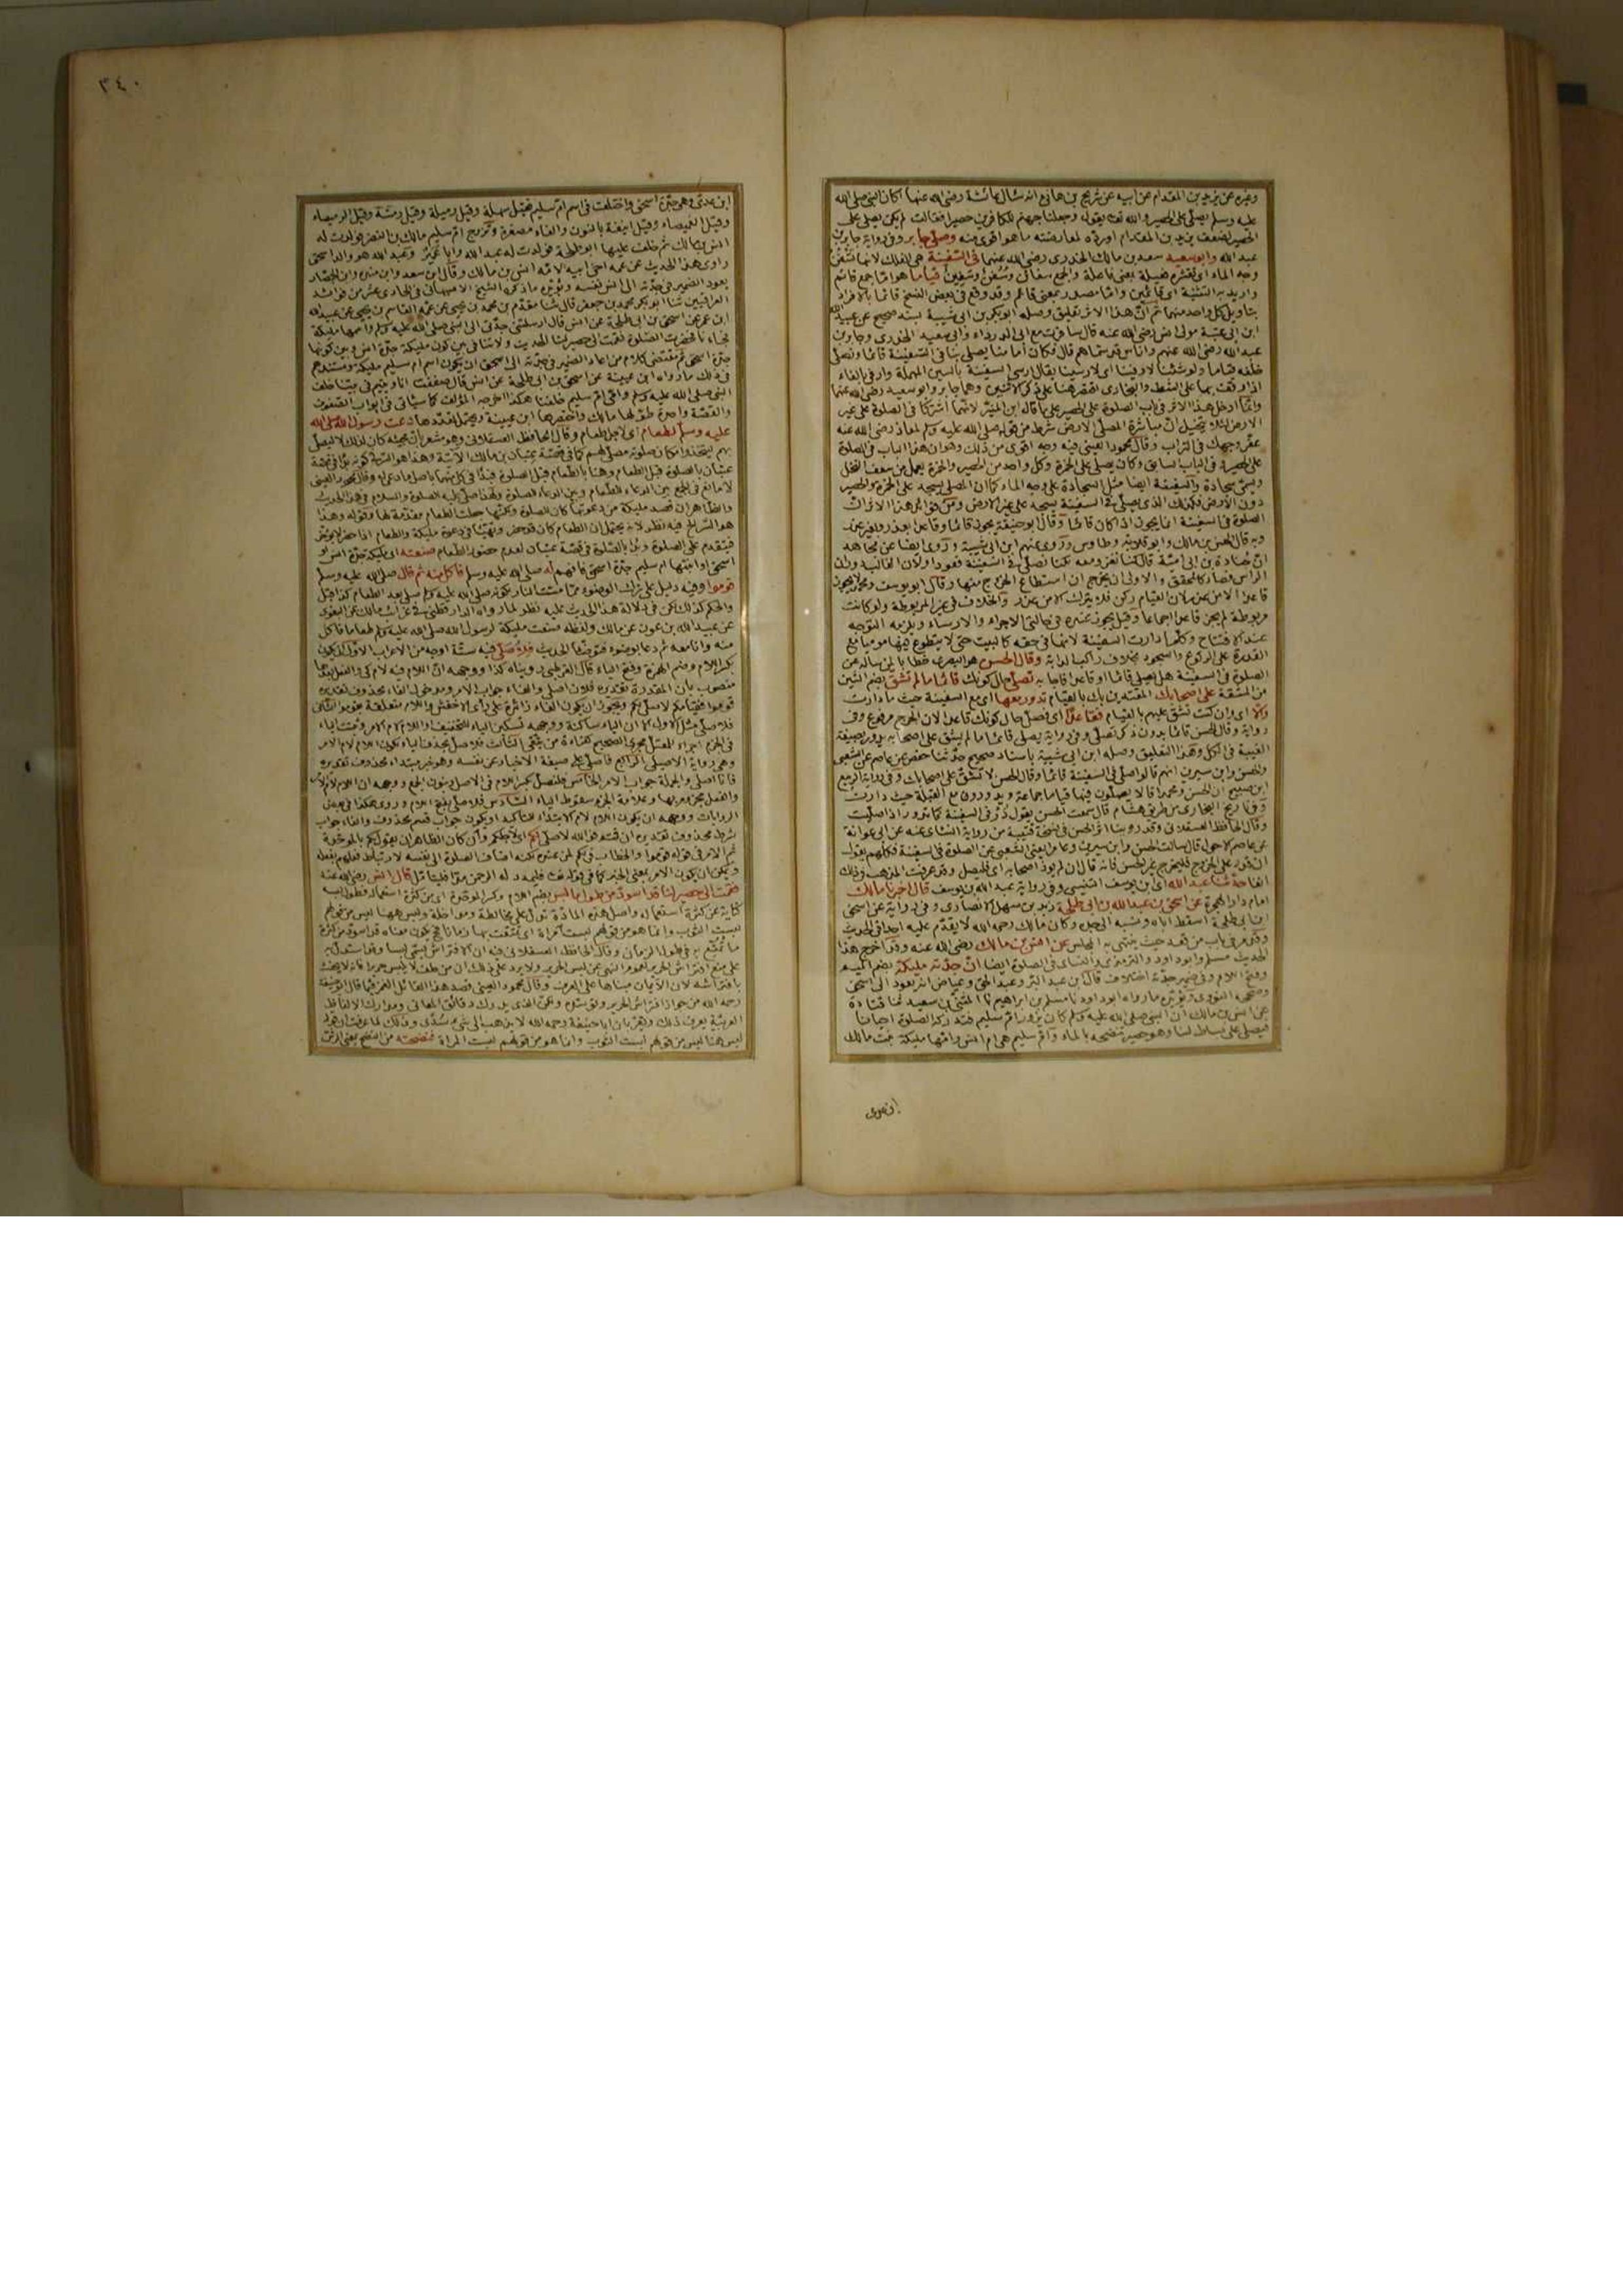 وغيره عن يزيد بن المقدام عن ابيه عن شريح بن هانئ انه سأل عائشة رضى الله عنها اكان النبى صلى الله
عليه وسلم يصلى على الحصير والله تعالى يقول وجعلنا جهنم للكافرين حصيرا فقالت لم يكن يصلى على
الحصير لضعف يزيد بن المقدام اورده لمعارضته ما هو اقوى منه وصلى جابر وفى رواية جابر بن
عبد الله وابو سعيد سعد بن مالك الخدرى رضى الله عنهما فى السفينة هى الفلك لانها تسفن
وجه الماء اى تقشره فعيلة بمعنى فاعلة والجمع سفائن وسفن وسفين قياما هو اما جمع قائم
واريد به التثنية اى قائمين واما مصدر بمعنى قائم وقد وقع فى بعض النسخ قائما بالافراد
بتأويل كل واحد منهما ثم ان هذا الاثر تعليق وصله ابو بكر بن ابى شيبة بسند صحيح عن عبيد الله
ابن ابى عتبة مولى انس رضى الله عنه قال سافرت مع ابى الدرداء وابى سعيد الخدرى وجابر بن
عبد الله رضى الله عنهم واناس قد سماهم قال فكان امامنا يصلى بنا فى السفينة قائما ونصلى
خلفه قياما ولو شئنا لارفينا اى لارسينا يقال ارسى السفينة بالسين المهملة وارفى بالفاء
اذا وقف بها على الشط والبخارى اقتصر هنا على ذكر الاثنين وهما جابر وابو سعيد رضى الله عنهما
وانما ادخل هذا الاثر فى باب الصلوة على الحصير على ما قاله ابن المنير لانهما اشتركا فى الصلوة على غير
الارض لئلا يتخيل ان مباشرة المصلى الارض شرط من قوله صلى الله عليه وسلم لمعاذ رضى الله عنه
عفر وجهك فى التراب وقال محمود العينى فيه وجه اقوى من ذلك وهو ان هذا الباب فى الصلوة
على الحصير وفى الباب السابق وكان يصلى على الخمرة وكل واحد من الحصير والخمرة يعمل من سعف النخل
ويسمى سجادة والسفينة ايضا مثل السجادة على وجه الماء كما ان المصلى يسجد على الخمرة والحصير
دون الارض فكذلك الذى يصلى فى السفينة يسجد على غير الارض ومن فوائد هذا الاثر ان
الصلوة فى السفينة انما يجوز اذا كان قائما وقال ابو حنيفة يجوز قائما وقاعدا بعذر وبغير عذر
وبه قال الحسن بن مالك وابو قلابة وطاوس وروى عنهم ابن ابى شيبة وروى ايضا عن مجاهد
ان جنادة بن ابى امية قال كنا نغزو معه لكنا نصلى فى السفينة قعودا ولان الغالب دوران
الرأس فصار كالمحقق والاولى ان يخرج ان استطاع الخروج منها وقال ابو يوسف ومحمد لا يجوز
قاعدا الا من عذر لان القيام ركن فلا يترك الا من عذر والخلاف فى غير المربوطة ولو كانت
مربوطة لم يجز قاعدا اجماعا وقيل يجوز عنده فى حالتى الاجراء والارساء ويلزمه التوجه
عند الافتتاح وكلما دارت السفينة لانها فى حقه كالبيت حتى لا يتطوع فيها موميا مع
القدرة على الركوع والسجود بخلاف راكب الدابة وقال الحسن هو البصرى خطابا لمن سأله عن
الصلوة فى السفينة هل يصلى قائما او قاعدا فاجابه تصلى حال كونك قائما ما لم تشق بضم الشين
من المشقة على اصحابك المقتدين بك بالقيام تدور معها اى مع السفينة حيث ما دارت
والا اى وان كنت تشق عليهم بالقيام فقاعدا اى فصل حال كونك قاعدا لان الحرج مرفوع وفى
رواية وقال الحسن قائما بدون ذكر تصلى وفى رواية يصلى قائما ما لم يشق على اصحابه يدور بصيغة
الغيبة فى الكل وهذا التعليق وصله ابن ابى شيبة باسناد صحيح حدثنا حفص عن عاصم عن الشعبى
والحسن وابن سيرين انهم قالوا صل فى السفينة قائما وقال الحسن لا تشق على اصحابك وفى رواية الربيع
ابن صبيح ان الحسن ومحمدا قالا يصلون فيها قياما جماعة ويدورون مع القبلة حيث دارت
وفى تاريخ البخارى من طريق هشام قال سمعت الحسن يقول در فى السفينة كما تدور اذا صليت
وقال الحافظ العسقلانى وقد روينا اثر الحسن فى نسخة قتيبة من رواية النسائى عنه عن ابى عوانة
عن عاصم الاحول قال سألت الحسن وابن سيرين وعامرا يعنى الشعبى عن الصلوة فى السفينة فكلهم يقول
ان قدر على الخروج فليخرج غير الحسن فانه قال ان لم يوذ اصحابه اى فليصل وقد عرفت المذهب فى ذلك
انفا حدثنا عبد الله اى بن يوسف التنيسى وفى رواية عبد الله بن يوسف قال اخبرنا مالك
امام دار الهجرة عن اسحق بن عبد الله بن ابى طلحة زيد بن سهل الانصارى وفى رواية عن اسحق
ابن ابى طلحة اسقط اباه ونسبه الى جده وكان مالك رحمه الله لا يقدم عليه احدا فى الحديث
وذكر فى باب من قعد حيث ينتهى به المجلس عن انس بن مالك رضى الله عنه وقد اخرج هذا
الحديث مسلم وابو داود والترمذى والنسائى فى الصلوة ايضا ان جدته مليكة بضم الميم
وفتح اللام وفى ضمير جدته اختلاف قال ابن عبد البر وعبد الحق وعياض انه يعود الى اسحق
وصححه النووى ويؤيده ما رواه ابو داود نا مسلم بن ابراهيم نا المثنى بن سعيد ثنا قتادة
عن انس بن مالك ان النبى صلى الله عليه وسلم كان يزور ام سليم فتدركه الصلوة احيانا
فيصلى على بساط لنا وهو حصير ننضحه بالماء وام سليم هى ام انس وامها مليكة بنت مالك
٣٤٠
ابن عدى وهى جدة اسحق واختلف فى اسم ام سليم فقيل سهلة وقيل رميلة وقيل رمثة وقيل الرميصاء
وقيل الغميصاء وقيل انيفة بالنون والفاء مصغرة وتزوج ام سليم مالك بن النضر فولدت له
انس بن مالك ثم خلف عليها ابو طلحة فولدت له عبد الله وابا عمير وعبد الله هو والد اسحق
راوى هذا الحديث عن عمه اخى ابيه لامه انس بن مالك وقال ابن سعد وابن منده وابن الحصار
يعود الضمير فى جدته الى انس نفسه ويؤيده ما ذكره الشيخ الاصبهانى فى الحادى عشر من فوائد
العراقيين ثنا ابو بكر محمد بن جعفر قال ثنا مقدم بن محمد بن يحيى عن عمه القاسم بن يحيى عن عبيد الله
ابن عمر عن اسحق بن ابى طلحة عن انس قال ارسلتنى جدتى الى النبى صلى الله عليه وسلم واسمها مليكة
فجاءنا فحضرت الصلوة فقمت الى حصير لنا الحديث ولا تنافى بين كون مليكة جدة انس وبين كونها
جدة اسحق ثم مقتضى كلام من اعاد الضمير فى جدته الى اسحق ان يكون اسم ام سليم مليكة ومستندهم
فى ذلك ما رواه ابن عيينة عن اسحق بن ابى طلحة عن انس قال صففت انا ويتيم فى بيتنا خلف
النبى صلى الله عليه وسلم وامى ام سليم خلفنا هكذا اخرجه المؤلف كما سيأتى فى ابواب الصفوف
والقصة واحدة طولها مالك واختصرها ابن عيينة ويحتمل تعددها دعت رسول الله صلى الله
عليه وسلم لطعام اى لاجل طعام وقال الحافظ العسقلانى وهو مشعر بان مجيئه كان لذلك لا ليصلى
بهم ليتخذوا مكان صلوته مصلى لهم كما فى قصة عتبان بن مالك الآتية وهذا هو السر فى كونه بدأ فى قصة
عتبان بالصلوة قبل الطعام وهنا بالطعام قبل الصلوة فبدأ فى كل منهما باصل ما دعى له وقال محمود العينى
لا مانع فى الجمع بين الدعاء للطعام وبين الدعاء للصلوة ولهذا صلى عليه الصلوة والسلام فى هذا الحديث
والظاهر ان قصد مليكة من دعوتها كان الصلوة ولكنها جعلت الطعام مقدمة لها وقوله وهذا
هو السر الخ فيه نظر لانه يحتمل ان الطعام كان قد حضر وتهيأ فى دعوة مليكة والطعام اذا حضر لا يؤخر
فيتقدم على الصلوة وبدأ بالصلوة فى قصة عتبان لعدم حضور الطعام صنعته اى مليكة جدة انس او
اسحق او ابنتها ام سليم جدة اسحق فافهم له صلى الله عليه وسلم فاكل منه ثم قال صلى الله عليه وسلم
قوموا وفيه دليل على ترك الوضوء مما مست النار لكونه صلى الله عليه وسلم صلى بعد الطعام كذا قيل
والحكم كذلك لكن فى دلالة هذا الحديث عليه نظر لما رواه الدارقطنى فى غرائب مالك عن البغوى
عن عبيد الله بن عون عن مالك ولفظه صنعت مليكة لرسول الله صلى الله عليه وسلم طعاما فاكل
منه وانا معه ثم دعا بوضوء فتوضأ الحديث فلاصلى فيه ستة اوجه من الاعراب الاول ان يكون
بكسر اللام وضم الهمزة وفتح الياء قال القرطبى رويناه كذا ووجهه ان اللام فيه لام كى والفعل بعدها
منصوب بان المقدرة تقديره فلان اصلى والفاء جواب الامر ومدخول الفاء محذوف تقديره
قوموا فقيامكم لاصلى بكم ويجوز ان يكون الفاء زائدة على رأى الاخفش واللام متعلقة بقوموا الثانى
فلاصلى مثل الاول الا ان الياء ساكنة ووجهه تسكين الياء للتخفيف واللام لام الامر وثبتت الياء
فى الجزم اجراء المعتل مجرى الصحيح كقراءة من يتقى الثالث فلاصل بحذف الياء لكون اللام لام الامر
وهى رواية الاصيلى الرابع فاصلى على صيغة الاخبار عن نفسه وهو خبر مبتدأ محذوف تقديره
فانا اصلى والجملة جواب الامر الخامس فلنصل بكسر اللام فى الاصل وبنون الجمع ووجهه ان اللام لام الامر
والفعل مجزوم بها وعلامة الجزم سقوط الياء السادس فلاصلى بفتح اللام وروى هكذا فى بعض
الروايات ووجهه ان يكون اللام لام الابتداء للتأكيد او يكون جواب قسم محذوف والفاء جواب
شرط محذوف تقديره ان قمتم فوالله لاصلى لكم اى لاجلكم وان كان الظاهر ان يقول بكم بالموحدة
ثم الامر فى قوله قوموا والخطاب فى لكم لمن عنده لكنه اضاف الصلوة الى نفسه لارتباط فعلهم بفعله
ويمكن ان يكون الامر بمعنى الخبر كما فى قوله تعالى فليمدد له الرحمن مدا فليتأمل قال انس رضى الله عنه
فقمت الى حصير لنا قد اسود من طول ما لبس بضم اللام وكسر الموحدة اى من كثرة استعماله وطول لبسه
كناية عن كثرة استعماله واصل هذه المادة تدل على مخالطة ومداخلة وليس ههنا لبس من قولهم
لبست الثوب وانما هو من قولهم لبست امرأة اى تمتعت بها زمانا فحينئذ يكون معناه قد اسود من كثرة
ما تمتع به فى طول الزمان وقال الحافظ العسقلانى فيه ان الافتراش يسمى لبسا وقد استدل به
على منع افتراش الحرير لعموم النهى عن لبس الحرير ولا يرد على ذلك ان من حلف لا يلبس حريرا فانه لا يحنث
بافتراشه لان الأيمان مبناها على العرف وقال محمود العينى قصد هذا القائل الغمز فيما قال ابو حنيفة
رحمه الله من جواز افتراش الحرير وتوسده ولكن الذى يدرك دقائق المعانى ومدارك الالفاظ
العربية يعرف ذلك ويقر بان ابا حنيفة رحمه الله لا يذهب الى شئ سدى وذلك لما عرفت ان هذا
ليس ههنا لبس من قولهم لبست الثوب وانما هو من قولهم لبست المرأة فنضحته من النضح يعنى الرش
ابن عدى